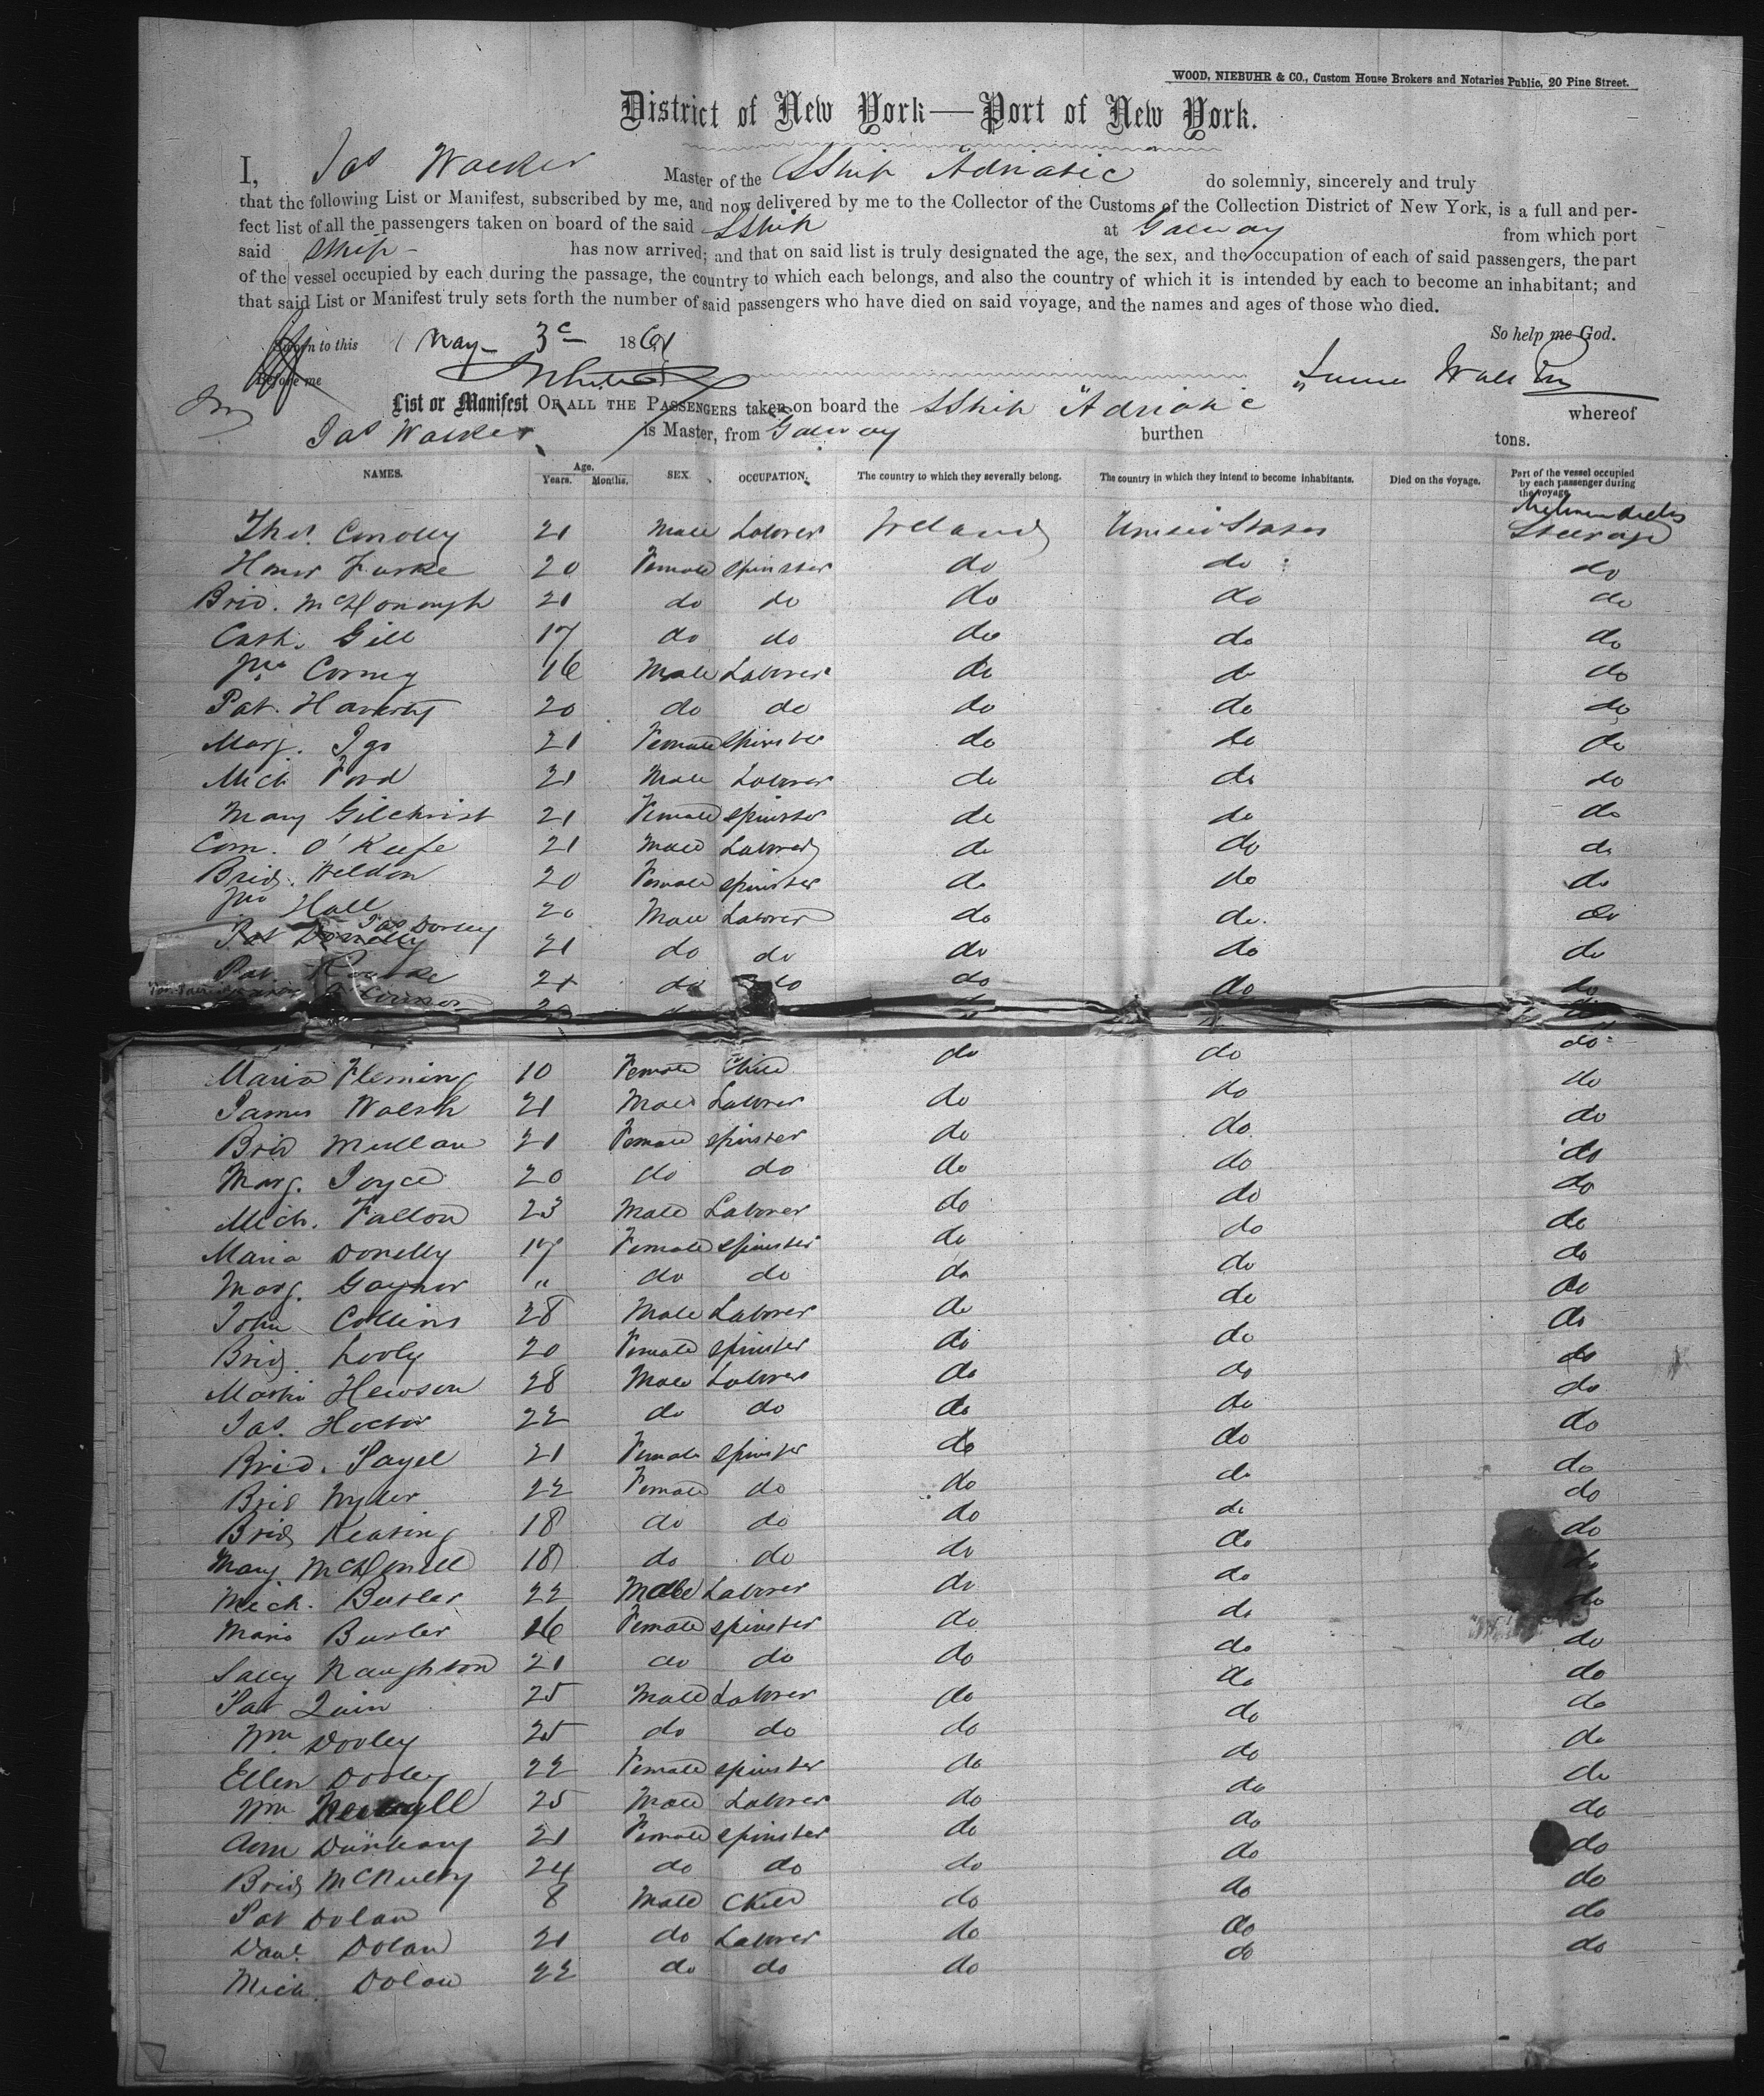 WOOD, NIEBUHR & CO., Custom House Brokers and Notaries Public, 20 Pine Street.
District of New York—Port of New York.
I, Jas Walker Master of the SShip Adriatic do solemnly, sincerely and truly
that the following List or Manifest, subscribed by me, and now delivered by me to the Collector of the Customs of the Collection District of New York, is a full and per-
fect list of all the passengers taken on board of the said SShip at Galway from which port
said Ship has now arrived; and that on said list is truly designated the age, the sex, and the occupation of each of said passengers, the part
of the vessel occupied by each during the passage, the country to which each belongs, and also the country of which it is intended by each to become an inhabitant; and
that said List or Manifest truly sets forth the number of said passengers who have died on said voyage, and the names and ages of those who died.
Sworn to this May 3 1861 So help me God.
Before me
List or Manifest OF ALL THE PASSENGERS taken on board the SShip "Adriatic whereof
Jas Walker is Master, from Galway burthen tons.
NAMES. Age. Years. Months. SEX. OCCUPATION. The country to which they severally belong. The country in which they intend to become inhabitants. Died on the voyage. Part of the vessel occupied by each passenger during the voyage.
Thos. Conolly 21 Male Laborer Ireland United States Steerage
Honor Burke 20 Female Spinster do do do
Brid. McDonough 21 do do do do do
Cath. Gill 17 do do do do do
Jno Corny 16 Male Laborer do do do
Pat. Haverty 20 do do do do do
Marg. Igo 21 Female Spinster do do do
Mich Ford 21 Male Laborer do do do
Mary Gilchrist 21 Female Spinster do do do
Corn. O'Keefe 21 Male Laborer do do do
Brid. Weldon 20 Female Spinster do do do
Jno Hall 20 Male Laborer do do do
Pat Donelly 21 do do do do do
Pat Rourke 21 do do do do do
Connor
Maria Fleming 10 Female Child do do do
James Walsh 21 Male Laborer do do do
Brid Mullan 21 Female Spinster do do do
Marg. Joyce 20 do do do do do
Mich. Fallon 23 Male Laborer do do do
Maria Donelly 17 Female Spinster do do do
Marg. Gaynor " do do do do do
John Collins 28 Male Laborer do do do
Brid. Looly 20 Female Spinster do do do
Martin Hewson 28 Male Laborer do do do
Jas. Hector 22 do do do do do
Brid. Payel 21 Female Spinster do do do
Brid Wyler 22 Female do do do do
Brid Keating 18 do do do do do
Mary McDonell 18 do do do do do
Mich. Butler 22 Male Laborer do do do
Maria Butler 16 Female Spinster do do do
Sally Naughton 21 do do do do do
Pat Quin 25 Male Laborer do do do
Wm Dooley 25 do do do do do
Ellen Dooley 22 Female Spinster do do do
Wm 25 Male Laborer do do do
Ann Dunleavy 21 Female Spinster do do do
Brid McNulty 24 do do do do do
Pat Dolan 8 Male Child do do do
Danl. Dolan 21 do Laborer do do do
Mich. Dolan 22 do do do do do